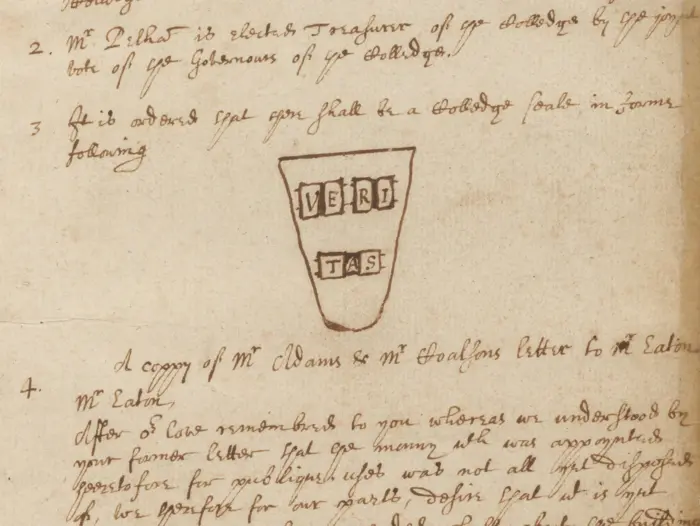 2. Mr Pelhā is elected Treasurer of the Colledge by the joynt
vote of the Governours of the Colledge.
3 It is ordered that there shall be a Colledge seale in forme
following
VE RI
TAS
4. A coppy of Mr Adams & Mr letter to Mr Eaton
Mr Eaton
After or love remembred to you whereas we understood by
your former letter that the monny wch was appoynted
heeretofore for publique uses was not all yet disposed
of, we therefore for our parts, desire that it is yet